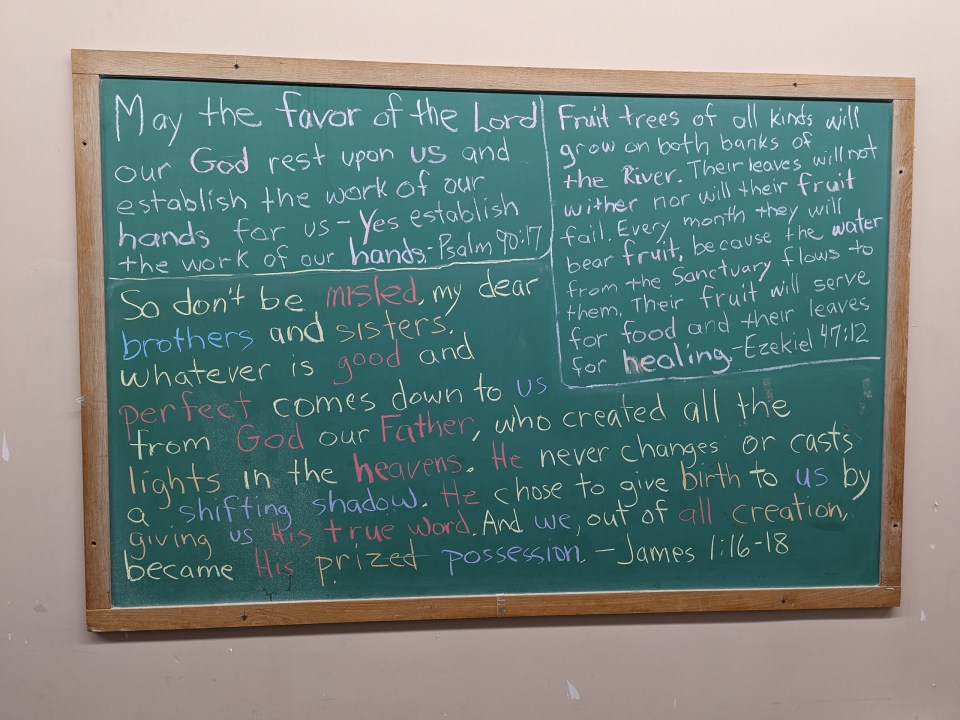 May the favor of the Lord
our God rest upon us and
establish the work of our
hands for us - Yes establish
the work of our hands. - Psalm 90:17
Fruit trees of all kinds will
grow on both banks of
the River. Their leaves will not
wither nor will their fruit
fail. Every month they will
bear fruit, because the water
from the Sanctuary flows to
them. Their fruit will serve
for food and their leaves
for healing. - Ezekiel 47:12
So don't be misled, my dear
brothers and sisters.
whatever is good and
perfect comes down to us
from God our Father, who created all the
lights in the heavens. He never changes or casts
a shifting shadow. He chose to give birth to us by
giving us His true word. And we, out of all creation,
became His prized possession. - James 1:16-18